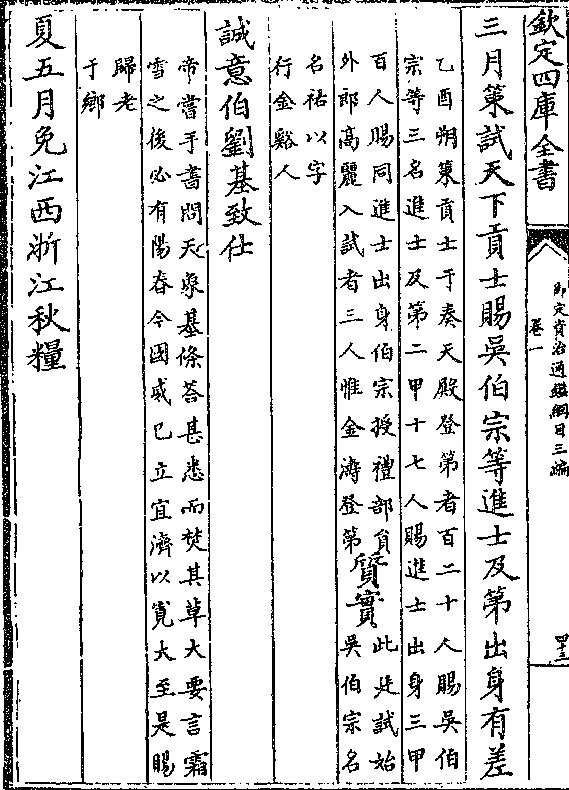 欽定四庫全書
御定資治通鑑綱目三編
卷一
四十三
三月策試天下貢士賜吳伯宗等進士及第出身有差
乙酉朔策貢士于奏天殿登第者百二十人賜吳伯
宗等三名進士及第二甲十七人賜進士出身三甲
百人賜同進士出身伯宗授禮部員
外郎高麗入試者三人惟金濤登第
質實
此廷試始
吳伯宗名
名祐以字
行金谿人
誠意伯劉基致仕
帝嘗手書問天象基條荅甚悉而焚其草大要言霜
雪之後必有陽春今國威已立宜濟以寛大至是賜
歸老
于鄉
夏五月免江西浙江秋糧